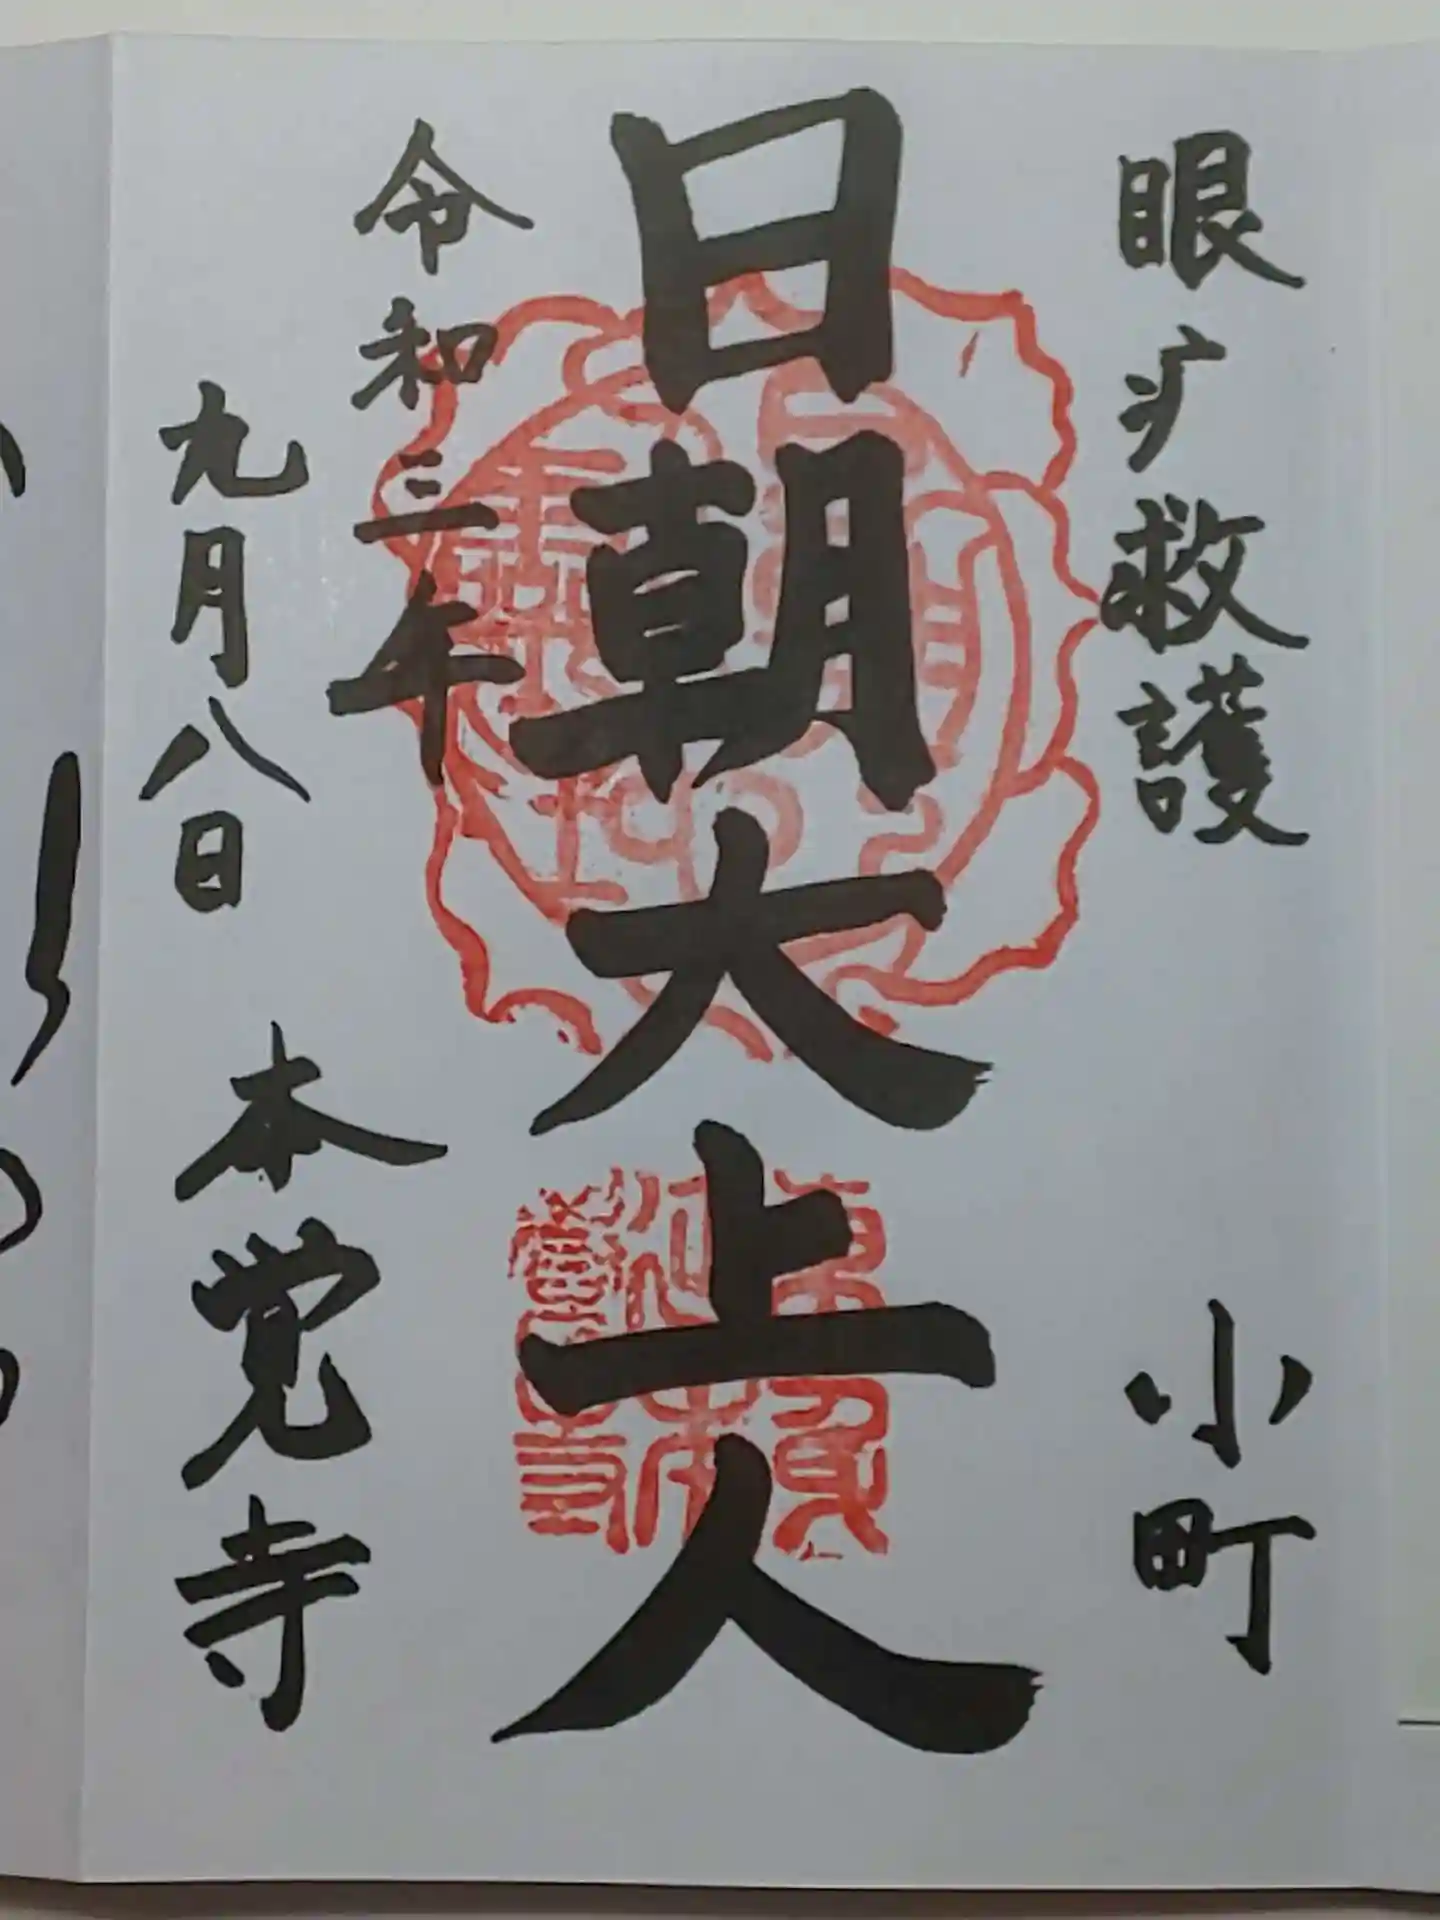 眼疒救護
小町
日朝大上人
令和三年
九月八日
本覚寺